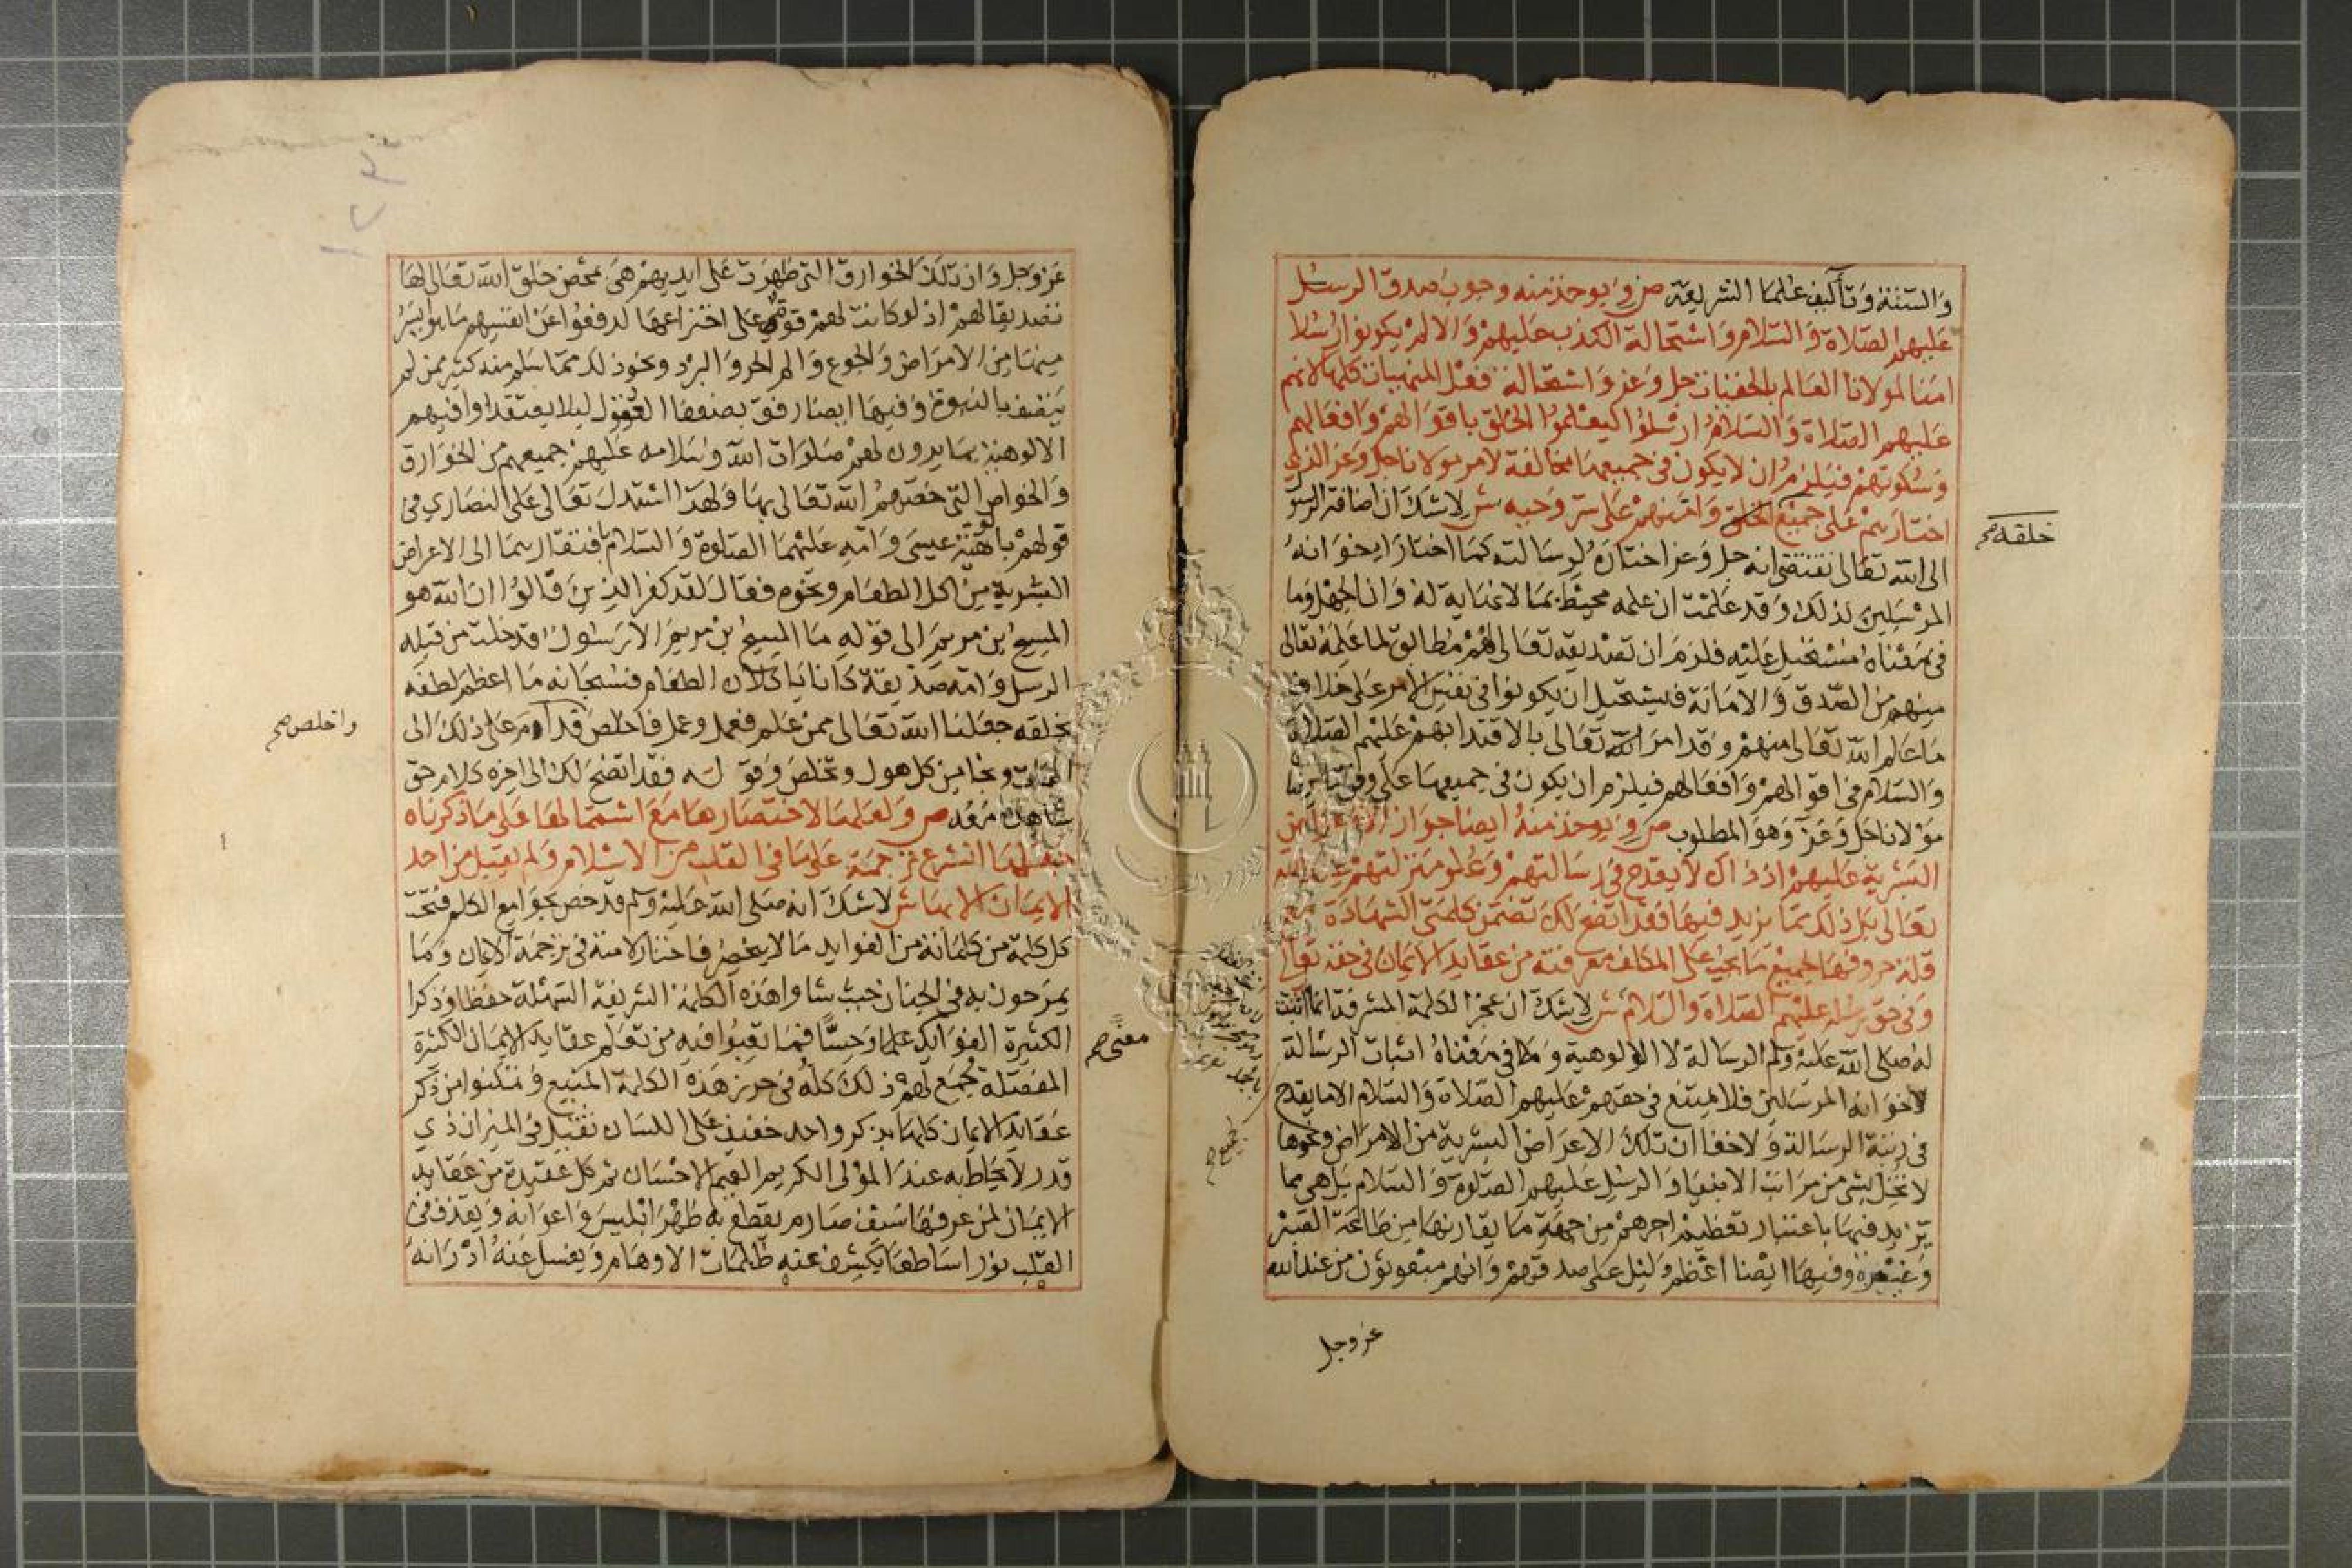 والسنة وتأليف علما الشريعة ص ويوخذ منه وجوب صدق الرسل
عليهم الصلاة والسلام واستحالة الكذب عليهم والا لم يكونوا رسلا
امنا لمولانا العالم بالخفيات جل وعز واستحالة فعل المنهيات كلها لانهم
عليهم الصلاة والسلام ارسلوا ليعلموا الخلق باقوالهم وافعالهم
وسكوتهم فيلزم ان لا يكون في جميعها مخالفة لامر مولانا جل وعز الذي
اختارهم على جميع الخلق وامنهم على سر وحيه ش لا شك ان اضافة الرسو
خلقه صح
الى الله تعالى تقتضي انه جل وعز اختاره لرسالته كما اختار اخوانه
المرسلين لذلك وقد علمت ان علمه محيط بما لا نهاية له وان الجهل وما
في معناه مستحيل عليه فلزم ان تصديقه تعالى لهم مطابق لما علمه تعالى
منهم من الصدق والامانة فيستحيل ان يكونوا في نفس الامر على خلاف
ما علم الله تعالى منهم وقد امر الله تعالى بالاقتدا بهم عليهم الصلاة
والسلام في اقوالهم وافعالهم فيلزم ان يكون في جميعها على وفق ما يرضا
مولانا جل وعز وهو المطلوب ص ويوخذ منه ايضا جواز الاعراض
البشرية عليهم اذ ذاك لا يقدح في رسالتهم وعلو منزلتهم عند الله
تعالى بل ذلك مما يزيد فيها فقد اتضح لك تضمن كلمتي الشهادة مع
قلة حروفها لجميع ما يجب على المكلف معرفته من عقايد الايمان في حقه تعالى
وفي حق رسله عليهم الصلاة والسلام ش لا شك ان عجز الكلمة المشرفة انما اثبتت
له صلى الله عليه وسلم الرسالة لا الالوهية وما في معناه اثبات الرسالة
لاخوانه المرسلين فلا يمتنع في حقهم عليهم الصلاة والسلام الا ما يقدح
في رتبة الرسالة ولا خفا ان تلك الاعراض البشرية من الامراض ونحوها
لا تخل بشي من مراتب الانبيا والرسل عليهم الصلوة والسلام بل هي مما
يزيد فيها باعتبار تعظيم اجرهم من جهة ما يقارنها من طاعة الصبر
وغيره وفيها ايضا اعظم دليل على صدقهم وانهم مبعوثون من عند الله
عز وجل
عز وجل وان تلك الخوارق التي ظهرت على ايديهم هي محض خلق الله تعالى لها
تصديقا لهم اذ لو كانت لهم قوة على اختراعها لدفعوا عن انفسهم ما هو ايسر
منها من الامراض والجوع والم الحر والبرد ونحو ذلك مما سلم منه كثير ممن لم
يتصف بالنبوة وفيها ايضا رفق بضعفا العقول ليلا يعتقدوا فيهم
الالوهية بما يرون لهم صلوات الله وسلامه عليهم جميعهم من الخوارق
والخواص التي خصهم الله تعالى بها ولهذا استدل تعالى على النصارى في
قولهم بالوهية عيسى وامه عليهما الصلوة والسلام بافتقارهما الى الاعراض
البشرية من اكل الطعام ونحوه فقال لقد كفر الذين قالوا ان الله هو
المسيح بن مريم الى قوله ما المسيح بن مريم الا رسول قد خلت من قبله
الرسل وامه صديقة كانا ياكلان الطعام فسبحانه ما اعظم لطفه
بخلقه جعلنا الله تعالى ممن علم فعمل وعمل فاخلص فدام على ذلك الى
واخلص صح
الممات ونجا من كل هول وتخلص وقوله فقد اتضح لك الى اخره كلام حق
شاهده معه ص ولعلها لاختصارها مع اشتمالها على ما ذكرناه
جعلها الشرع ترجمة على ما في القلب من الاسلام ولم يقبل من احد
الايمان الا بها ش لا شك انه صلى الله عليه وسلم قد خص بجوامع الكلم فتحت
كل كلمة من كلماته من الفوايد ما لا ينحصر فاختار لامته في ترجمة الايمان وما
يمرحون به في الجنان حيث شاوا هذه الكلمة الشريفة السهلة حفظا وذكرا
الكثيرة الفوايد علما وحسا فما تعبوا فيه من تعلم عقايد الايمان الكثيرة
معنى صح
المفصلة جمع لهم ذلك كله في حرز هذه الكلمة المنيع وتمكنوا من ذكر
عقايد الايمان كلها بذكر واحد خفيف على اللسان ثقيل في الميزان ذي
قدر لا يحاط به عند المولى الكريم العميم الاحسان ثم كل عقيدة من عقايد
الايمان لمن عرفها سيف صارم يقطع به ظهر ابليس واعوانه ويقذف في
القلب نورا ساطعا يكشف عنه ظلمات الاوهام ويغسل عنه ادرانه